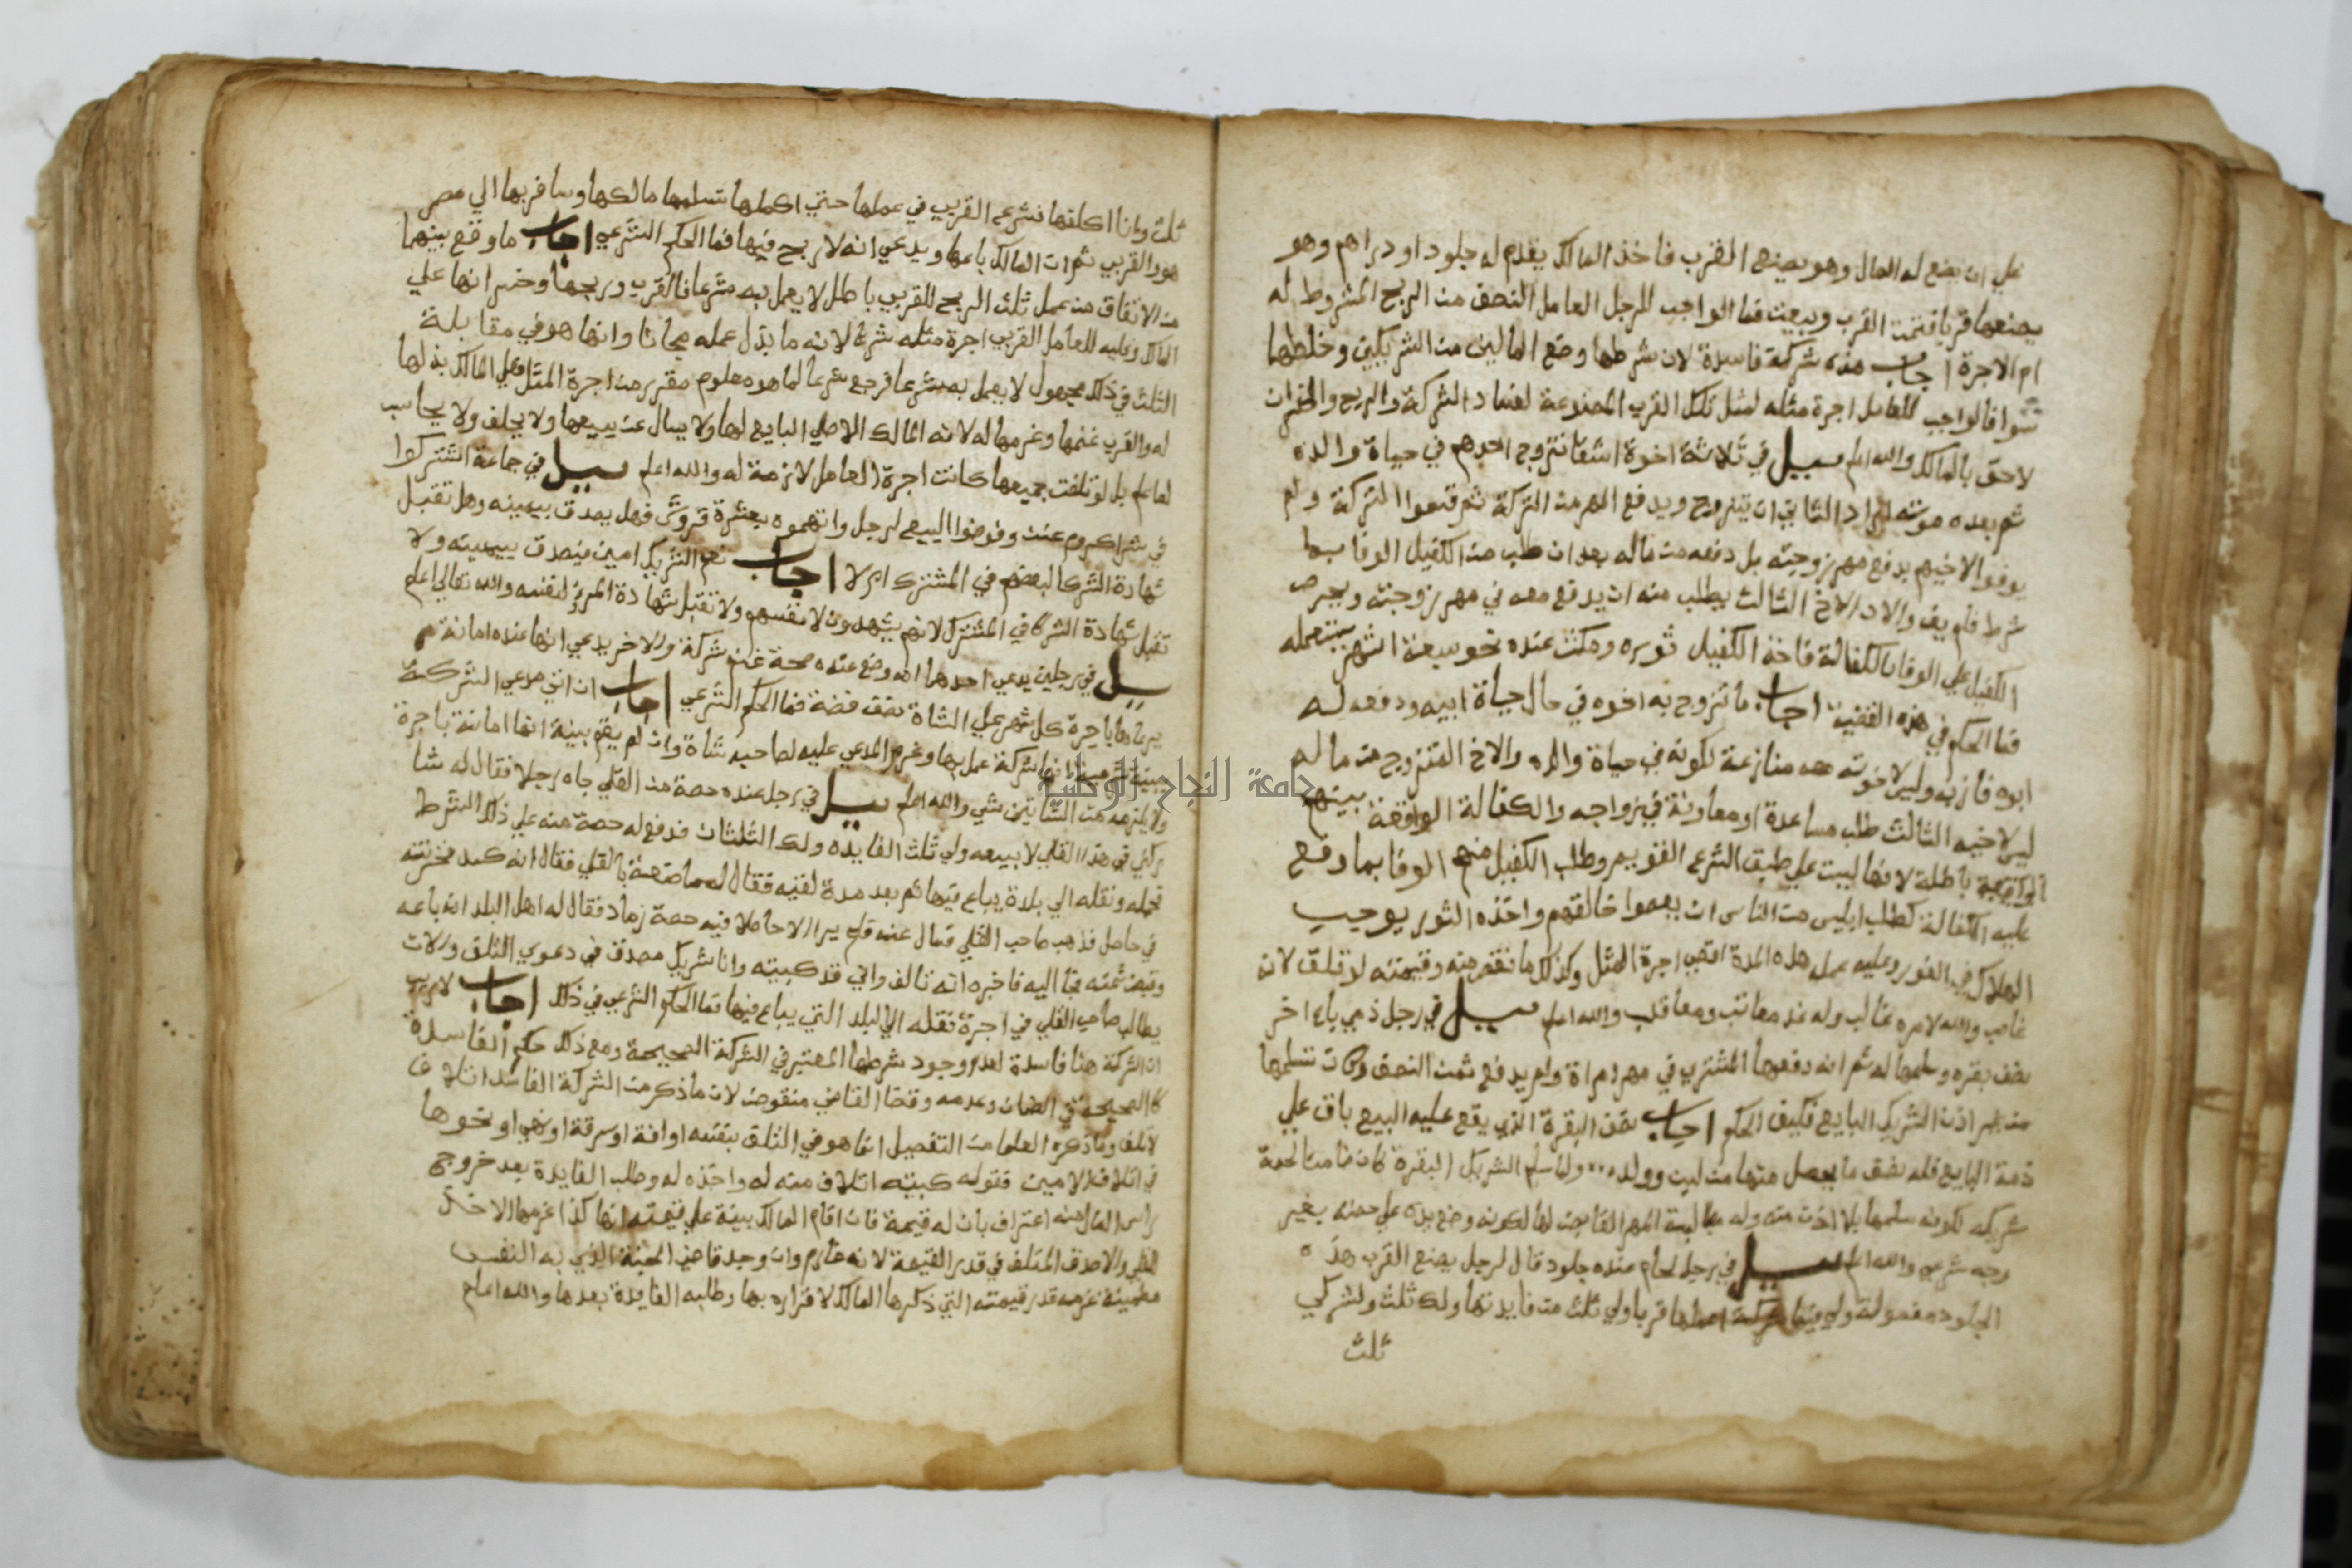 علي ان يضع له المال وهو يصنع القرب فاخذ المالك يقدم له جلود او دراهم وهو
يصنعها قربا فتمت القرب وبيعت فما الواجب للرجل العامل النصف من الربح المشروط له
ام الاجرة اجاب هذه شركة فاسدة لان شرطها وضع المالين من الشريكين وخلطها
سوا فالواجب للعامل اجرة مثله لمثل تلك القرب المصنوعة لفساد الشركة والربح والخسران
لاحق بالمالك والله اعلم سيل في ثلاثة اخوة اشقا تزوج احدهم في حياة والده
ثم بعد موته اراد الثاني ان يتزوج ويدفع المهر من التركة ثم قسموا التركة ولم
يوفوا لاخيهم بدفع مهر زوجته بل دفعه من ماله بعد ان طلب من الكفيل الوفا بما
شرط فلم يف والاد الاخ الثالث يطلب منه ان يدفع معه في مهر زوجته ويجبر
الكفيل علي الوفا بالكفالة فاخذ الكفيل ثوره ومكث عنده نحو سبعة اشهر يستعمله
فما الحكم في هذه القضية اجاب ما تزوج به اخوه في حال حياة ابيه ودفعه له
ابوه فاز به وليس لاخوته معه منازعة لكونه في حياة والده والاخ المتزوج من ماله
ليس لاخيه الثالث طلب مساعدة او معاونة في زواجه والكفالة الواقعة بينهم
باطلة لانها ليست علي طبق الشرع القويم وطلب الكفيل منهم الوفا بما دفع
عليه الكفالة كطلب ابليس من الناس ان يعصوا خالقهم واخذه الثور يوجب
الهلاك في الفور وعليه عمله هذه المدة اقصي اجرة المثل وكذلك ما نقص منه وقيمته لو تلف لانه
غاصب والله لامره غالب وله غد معاتب ومعاقب والله اعلم سيل في رجل ذمي باع اخر
نصف بقره وسلمها له ثم انه دفعها المشتري في مهر امراة ولم يدفع ثمن النصف وكان تسلمها
من غير اذن الشريك البايع فكيف الحكم اجاب نصف البقرة الذي يقع عليه البيع باق علي
ذمة البايع فله نصف ما يحصل منها من لبن وولد ولما سلم الشريك البقرة كان ضامنا لحصة
شريكه لكونه سلمها بلا اذن منه وله مطالبة المهر القابض لها لكونه وضع يده علي حصته بغير
وجه شرعي والله اعلم سيل في رجل لحام عنده جلود قال لرجل يصنع القرب هذه
الجلود مغمولة ولي فيها شركة اعملها قربا ولي ثلث من فايدتها ولك ثلث ولشركي
ثلث
ثلث وانا اكلفها فشرع القربي في عملها حتي اكملها تسلمها مالكها وسافر بها الي مصر
هو والقربي ثم ان المالك باعها ويدعي انه لا ربح فيها فما الحكم الشرعي اجاب ما وقع بينهما
من الاتفاق من عمل ثلث الربح للقربي باطل لا يعمل به شرعا فالقرب وربحها وخسرانها علي
المالك وعليه للعامل القربي اجرة مثله شرعا لانه ما بذل عمله مجانا وانما هو في مقابلة
الثلث في ذلك مجهول لا يعمل به شرعا فرجع شرعا لما هو معلوم مقرر من اجرة المثل وعلي المالك بذلها
له والقرب غنمها وغرمها له لانه المالك الاصلي البايع لها ولا يسال عن بيعها ولا يحلف ولا يحاسب
لعامل بل لو تلفت جميعها كانت اجرة العامل لازمة له والله اعلم سيل في جماعة اشتركوا
في شرا كروم عنب وفوضوا البيع لرجل واتهموه بعشرة قروش فهل يصدق بيمينه وهل تقبل
شهادة الشركا لبعضهم في المشترك ام لا اجاب نعم الشريك امين فيصدق بيمينه ولا
تقبل شهادة الشركا في المشترك لانهم يشهدون لانفسهم ولا تقبل شهادة المرء لنفسه والله تعالي اعلم
سيل في رجلين يدعي احدهما انه وضع عنده صحة غنم شركة والاخر يدعي انها عنده امانة
يرعاها باجرة كل شهر علي الشاة نصف فضة فما الحكم الشرعي اجاب ان اتي مدعي الشركة
ببينة شرعية انها شركة عمل بها وغرم المدعي عليه لصاحبه شاة وان لم يقم بينة انها امانة باجرة
ولا يلزمه من الشاتين شي والله اعلم سيل في رجل عنده حصة من القلي جاه رجلا فقال له شا
ركني في هذا القلي لا بيعه ولي ثلث الفايده ولك الثلثان فدفع له حصة منه علي ذلك الشرط
فحمله ونقله الي بلدة يباع فيها ثم بعد مدة لقيه فقال له ما صنعت بالقلي فقال انه كسد فخزنته
في حاصل فذهب صاحب القلي فسال عنه فلم ير الا حاصلا فيه حصة رماد فقال له اهل البلد انه باعه
وقبض ثمنه فجا اليه فاخبره انه تالف واني قد كبيته وانا شريك مصدق في دعوي التلف والان
يطالب صاحب القلي في اجرة نقله الي البلد التي يباع فيها فما الحكم الشرعي في ذلك اجاب لا ريب
ان الشركة هنا فاسدة لعدم وجود شرطها المعتبر في الشركة الصحيحة ومع ذلك حكم الفاسدة
كالصحيحة في الضمان وعدمه وقضا القاضي منقوض لان ما ذكر من الشركة الفاسدة اتلاف
لا تلف وما ذكره العلما من التفصيل انما هو في التلف بنفسه او افة او سرقة او نهب او نحوها
في اتلاف الامين فقوله كبيته اتلاف منه له واخذه له وطلب الفايدة بعد خروج
راس المال منه اعتراف بان له قيمة فان اقام المالك بينة علي قيمته انها كذا غرمها الاخذ
للقلي والا صدق المتلف في قدر القيمة لانه غارم وان وجد قاضي المحبة الذي به النفس
مطمينة غرمه قدر قيمته التي ذكرها المالك لاقراره بها وطلبه الفايدة بعدها والله اعلم
جامعة النجاح الوطنية